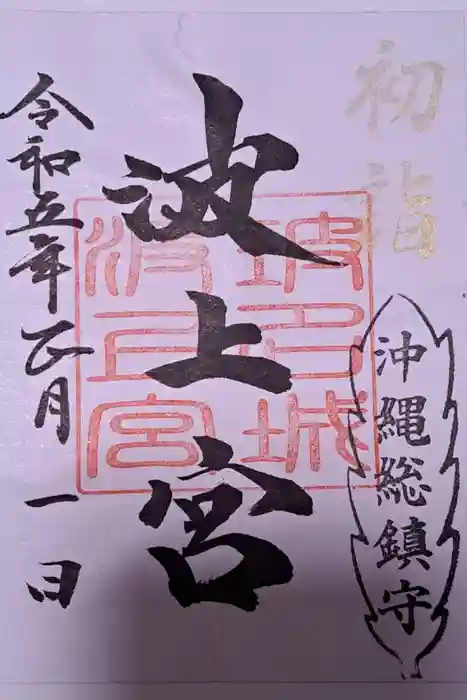 初詣
沖縄総鎮守
波上宮
坡名城
波上宮
令和五年正月一日